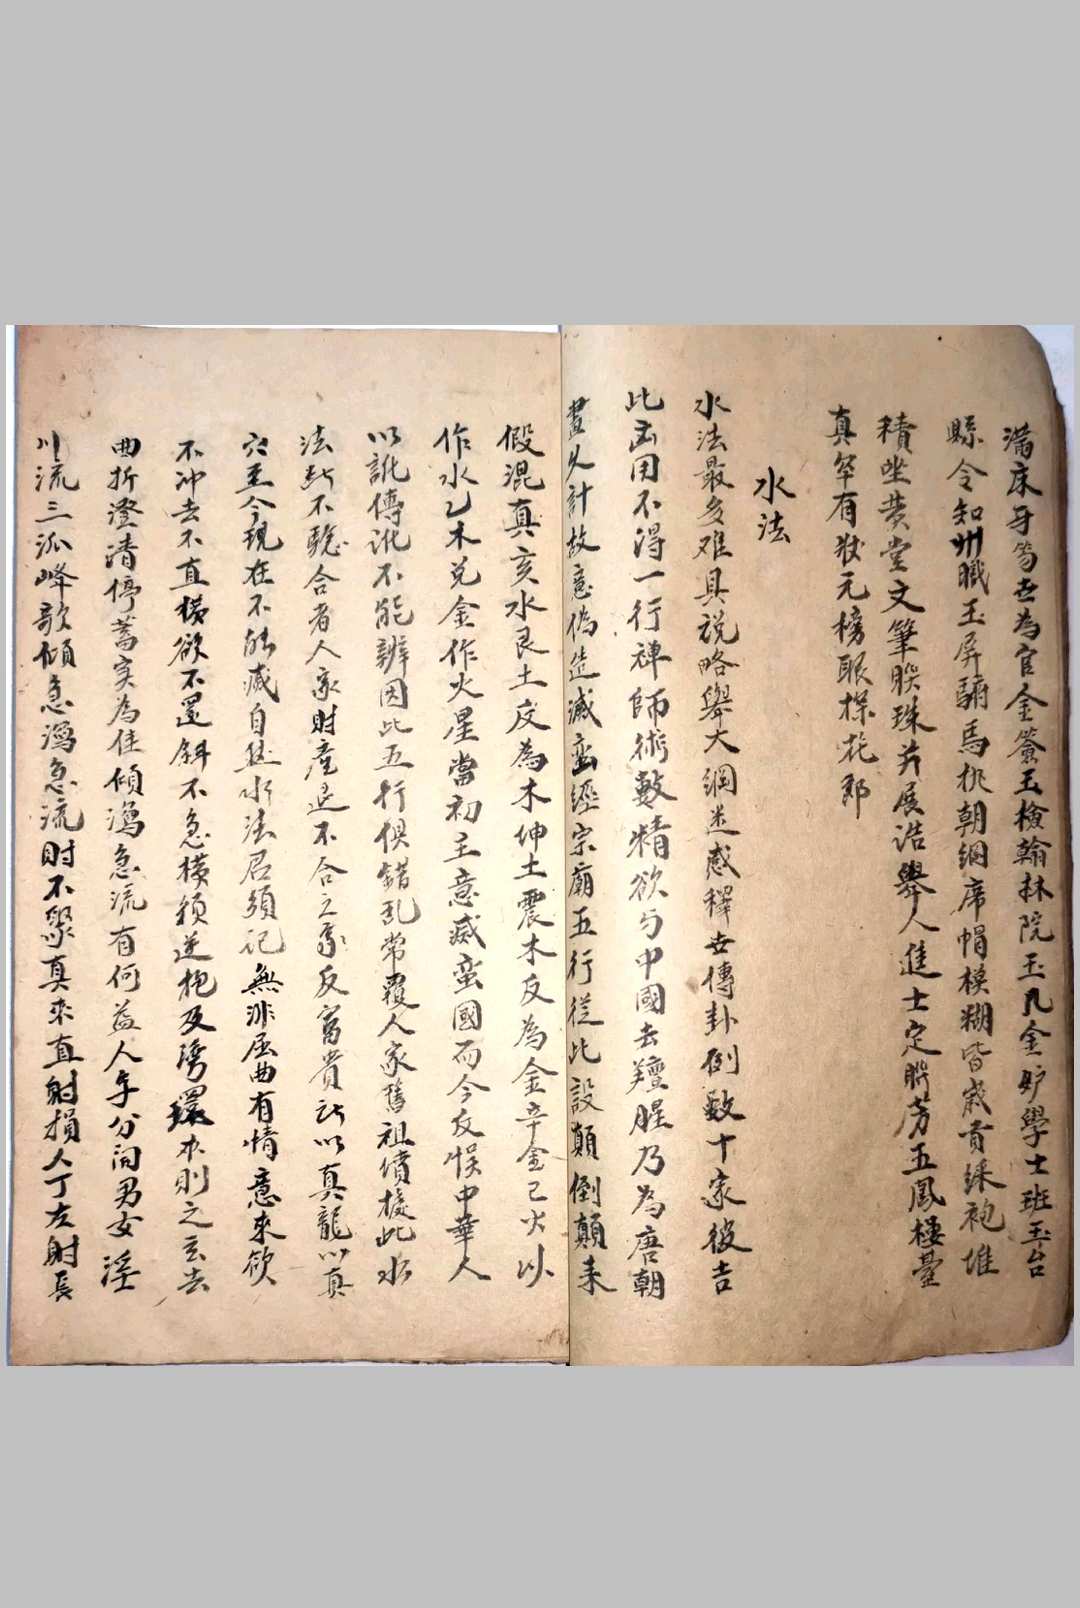 滿床牙笏世為官金簽玉檢翰林院玉几金炉學士班玉台
縣令知州職玉屏駙馬挑朝綱席帽模糊皆歲貢綵袍堆
積坐黌堂文筆联珠芳展誥舉人進士定聨芳五鳳樓臺
真罕有狀元榜眼探花郎
水法
水法最多难具説略舉大綱迷惑釋世傳卦例数十家彼吉
此凶用不淂一行禅師術數精欲与中國去羶腥乃為唐朝
畫久計故意偽造滅蛮經宗廟五行從此設顛倒顛来
假混真亥水艮土反為木坤土震木反為金辛金己火以
作水乙木兑金作火星當初主意滅蛮國而今反悮中華人
以訛傳訛不能辦因此五行俱錯乱常覆人家舊祖墳據此水
法㫁不聼合者人家財產退不合之家反富貴計以真龍以真
穴至今現在不能滅自然水法君須记無非屈曲有情意來欲
不冲去不直横欲不還斜不急横須逆抱及湾環水則之玄去
曲折澄清停蓄実為佳傾瀉急流有何益人丁分间男女滛
川流三派峰歌傾急瀉急流財不聚真來直射損人丁左射長